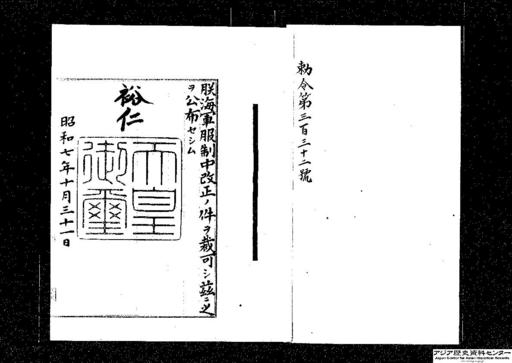 勅令第三百三十二號
朕海軍服制中改正ノ件ヲ裁可シ茲ニ之
ヲ公布セシム
裕仁
天皇
御璽
昭和七年十月三十一日
アジア歴史資料センター
Japan Center for Asian Historical Records